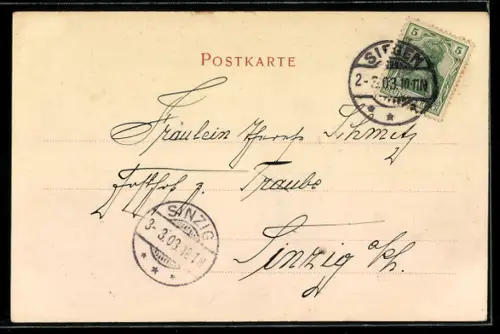 POSTKARTE
5 5
SIEGEN
2-3.03.10-11N
* *
Fräulein Therese Schmitz
Gasthof z. Traube
Sinzig a/Rh.
SINZIG
3-3.03.
* * *